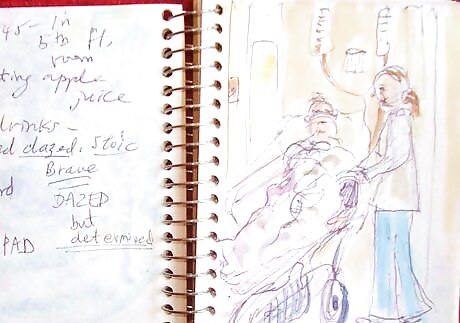 45 - In
5th fl.
room
ting apple
juice
drinks -
ed dazed. Stoic
Brave
rd
DAZED
but
determined
PAD